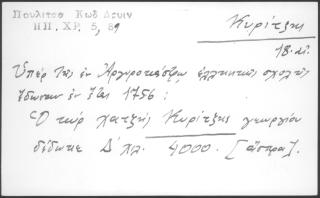 Πουλίτσα Κωδ Δρυιν
ΠΠ. ΧΡ. 5, 89
Κυρίτζης
18. αἰ.
Ὑπὲρ τῶν ἐν Ἀργυροκάστρῳ ἑλληνικῶν σχολῶν
ἔδωσαν ἐν ἔτει 1756:
Ὁ ποτὲ χατζῆ Κυρίτζης γεωργίου
δέδωκε Δ´ χιλ. 4000. [ἄσπρα].